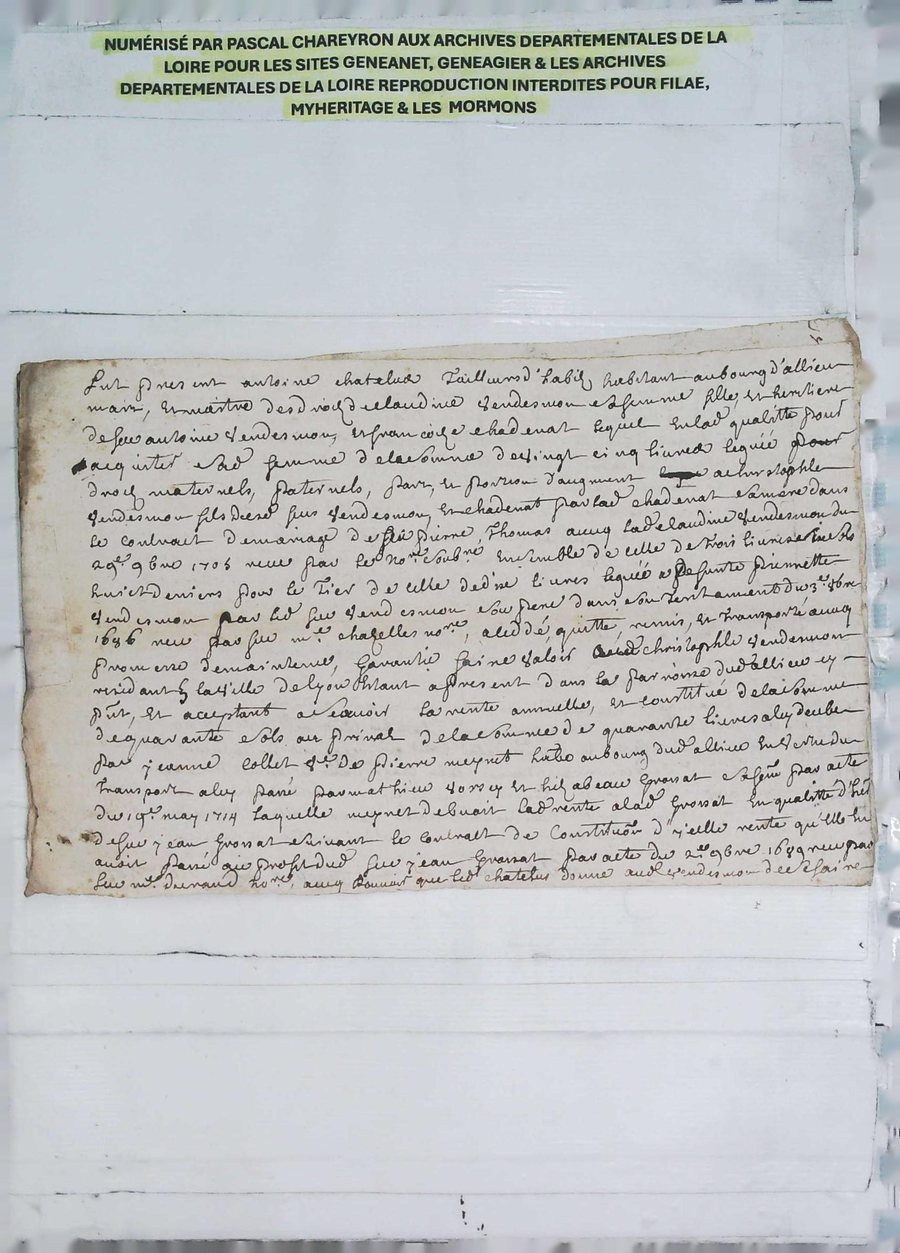 NUMÉRISÉ PAR PASCAL CHAREYRON AUX ARCHIVES DEPARTEMENTALES DE LA
LOIRE POUR LES SITES GENEANET, GENEAGIER & LES ARCHIVES
DEPARTEMENTALES DE LA LOIRE REPRODUCTION INTERDITES POUR FILAE,
MYHERITAGE & LES MORMONS
fut present antoine chatelus Tailleurs d'habitz habitant au bourg d'allieu
mary, et maistre des droitz de claudine Vendesmon sa femme fille, et heritiere
de feu antoine Vendesmon, et francoise chadenat lequel en lad qualitté pour
acquitter sad femme de la somme de vingt cinq livres leguée pour
droitz maternels, paternels, part, et portion d'augment a christophle
Vendesmon fils dud feu Vendesmon, et chadenat par lad chadenat sa mere dans
le contract de mariage de feu pierre Thomas avecq lad claudine Vendesmon du
29e 9bre 1705 receu par le nore soubne Ensemble de celle de trois livres six sols
huict deniers pour le tier de celle de dix livres leguée a defunte pierrette
Vendesmon par led feu Vendesmon son pere dans son testament du 3e
1686 receu par feu me chazelles nore, a ceddé, quitté, remis, et transporté avecq
promesse de maintenir, garantir faire valoir aud christophle Vendesmon
residant en la ville de lyon estant a present dans la parroisse dud allieu cy
pnt, et acceptant a scavoir la rente annuelle, et constitué de la somme
de quarante sols au prinal de la somme de quarante livres a luy deube
par jeanne collet ve de pierre meynet habte au bourg dud allieu en vertu du
transport a luy passé par mathieu et Elizabeau Grossat sa fem par acte
du 19e may 1714 laquelle meynet debvoit lad rente a lad Grossat en qualitté d'her
de feu jean Grossat suivant le contract de constituon d'jcelle rente qu'elle en
avoit passé au proffit dud feu jean Grossat par acte du 2e 9bre 1689 receu par
feu me durand nore, avecq pouvoir que led chatelus donne aud Vendesmon de s'en faire